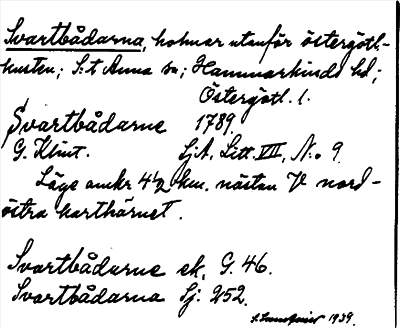 Svartbådarna, holmar utanför östergötl.-
kusten; S:t Anna sn; Hammarkinds hd;
Östergötl. l.
Svartbådarne 1789.
G. Klint. Sj.A. Litt. VII, N:o 9.
Läge omkr 4 1/2 km. nästan V nord-
östra karthörnet.
Svartbådarne ek. G. 46.
Svartbådarna Sj. 252.
1939.